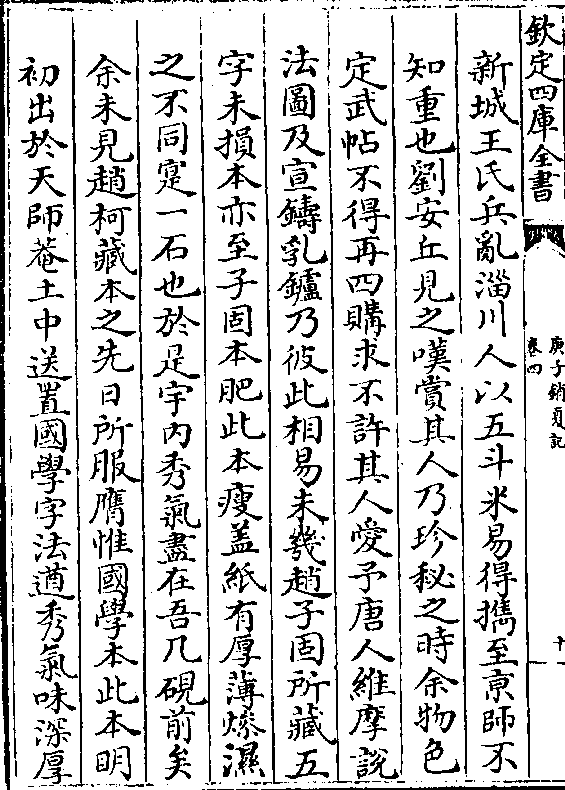 欽定四庫全書
庚子銷夏記
卷四
十一
新城王氏兵亂淄川人以五斗米易得攜至京師不
知重也劉安丘見之嘆賞其人乃珍秘之時余物色
定武帖不得再四購求不許其人愛予唐人維摩說
法圖及宣鑄乳鑪乃彼此相易未幾趙子固所藏五
字未損本亦至子固本肥此本瘦盖紙有厚薄燥濕
之不同寔一石也於是宇内秀氣盡在吾几硯前矣
余未見趙柯藏本之先日所服膺惟國學本此本明
初出於天師菴土中送置國學字法遒秀氣味深厚